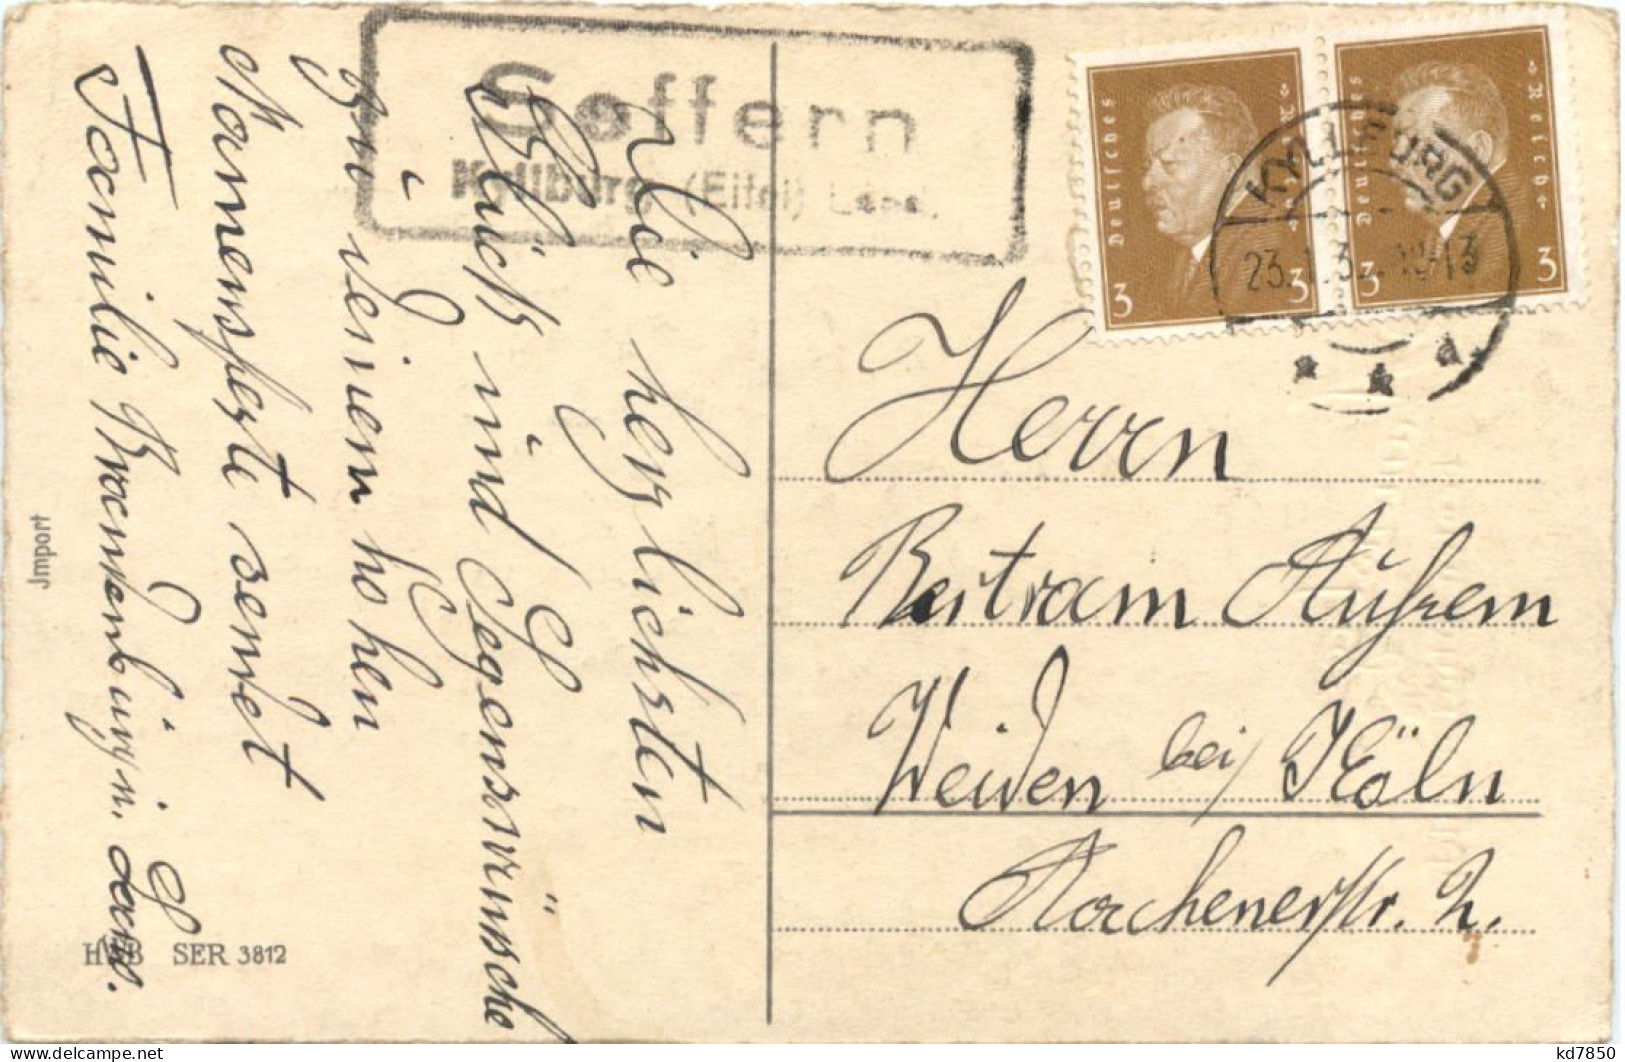 Seffern
Kyllburg (Eifel) Land.
Deutsches Reich
3 3
Deutsches Reich
3 3
KYLLBURG
23. 12-13
a
Die herzlichsten
Glück und Segenswünsche
zu deinem hohen
Namensfeste sendet
Familie
Herrn
Bertram
Weiden bei Köln
Aachenerstr.
Jmport
HWB SER 3812
kd7850
delcampe.net